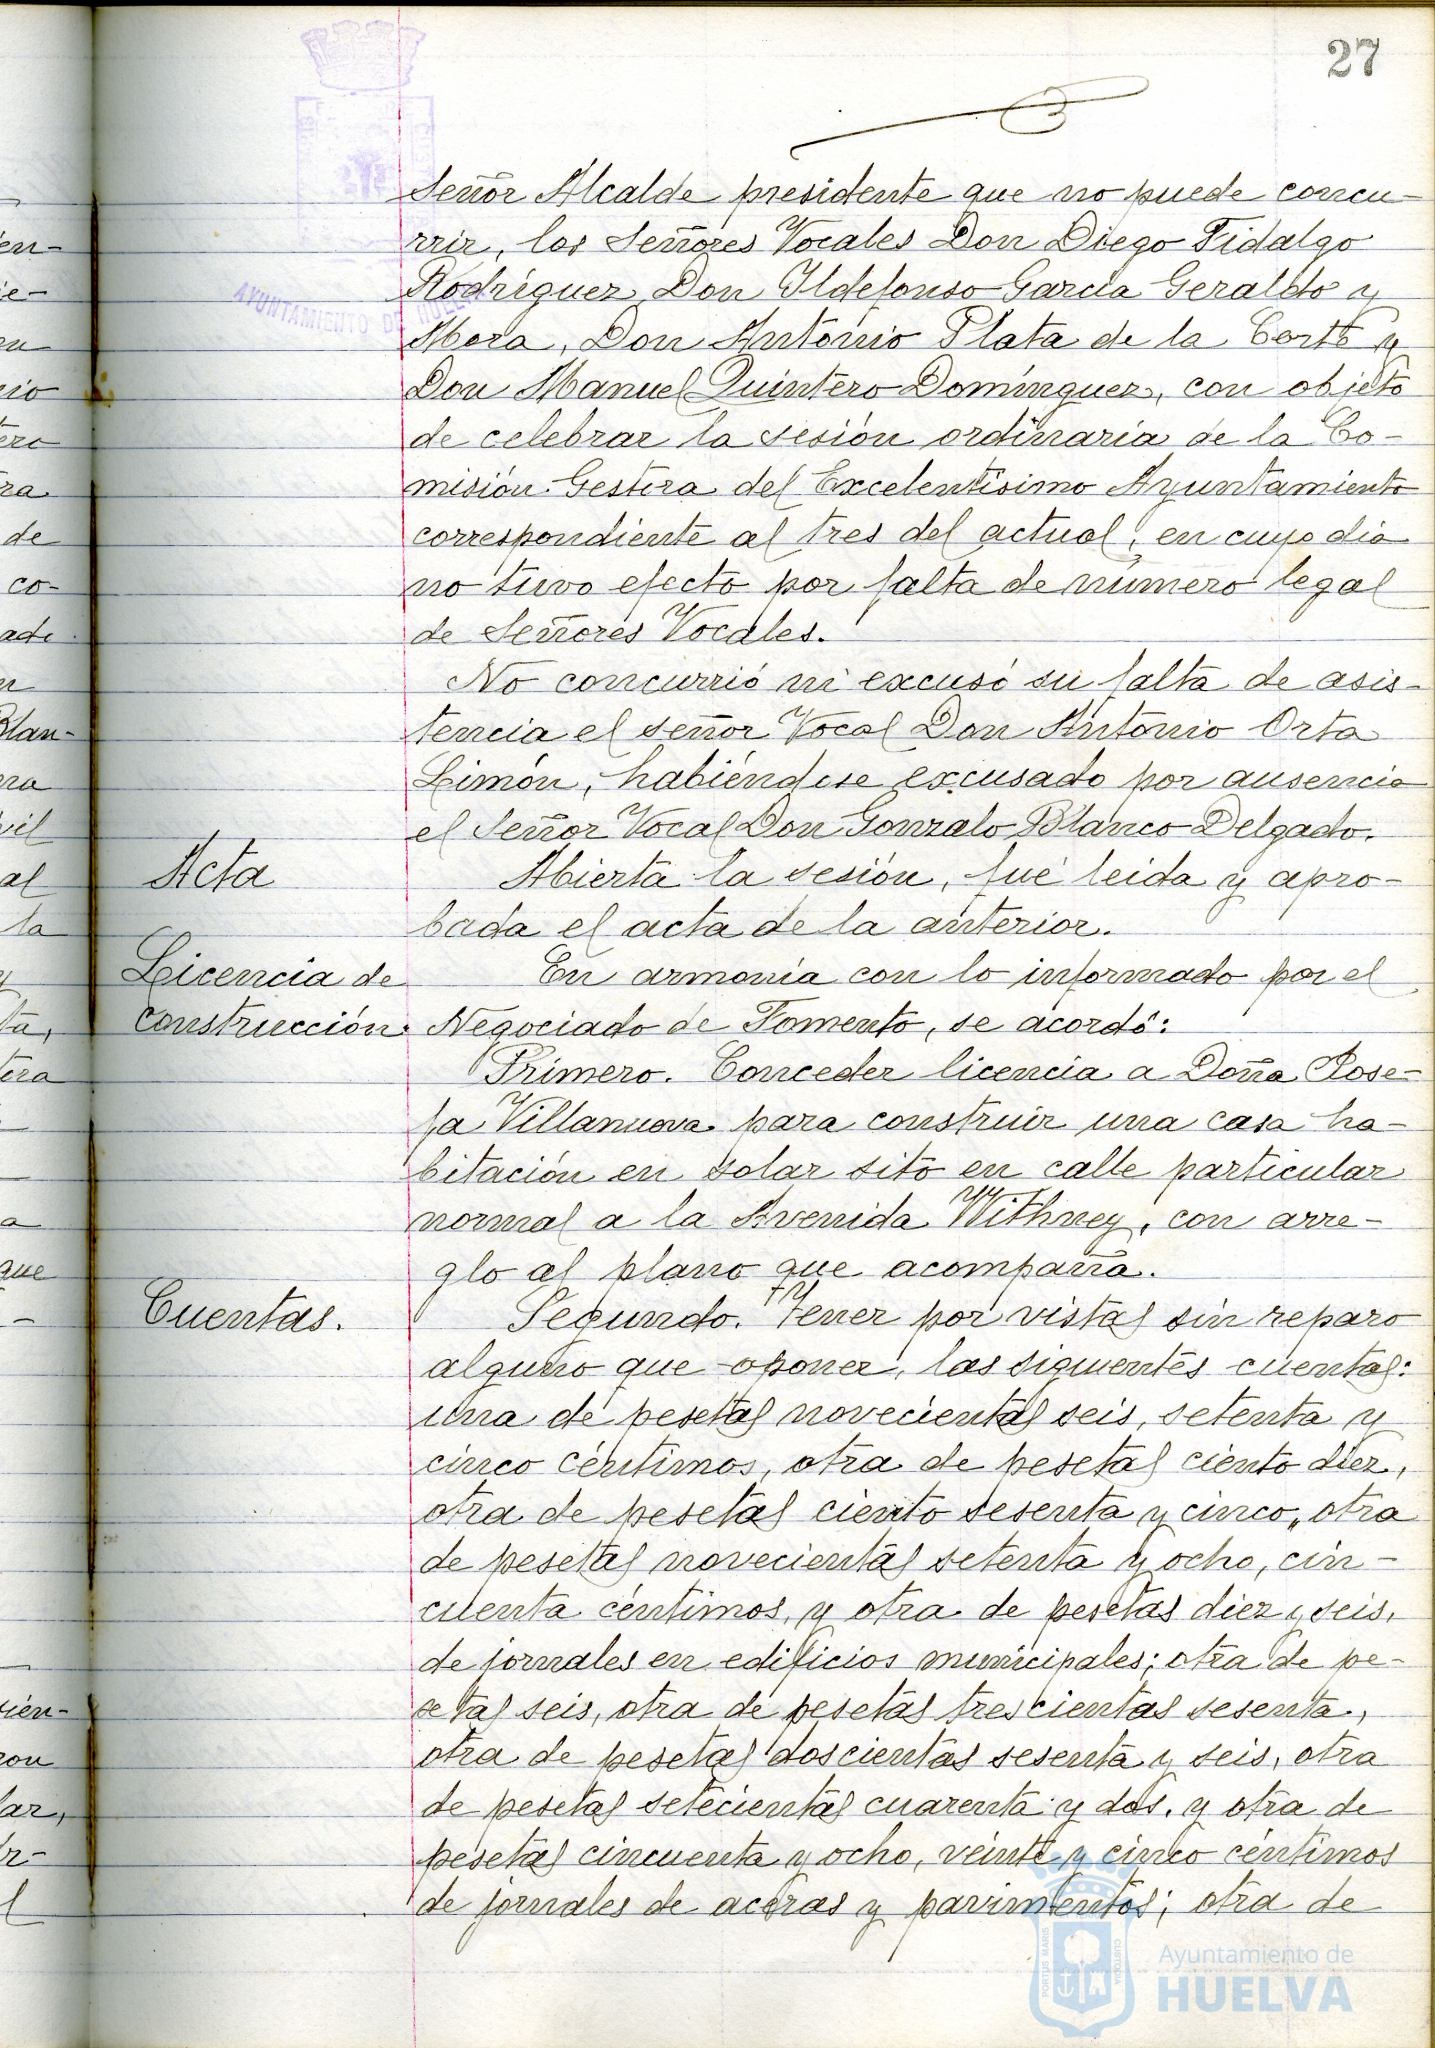 27
Señor Alcalde presidente que no puede concu-
rrir, los Señores Vocales Don Diego Fidalgo
Rodríguez, Don Ildefonso García Geraldo y
Mora, Don Antonio Plata de la Corte y
Don Manuel Quintero Domínguez, con objeto
de celebrar la sesión ordinaria de la Co-
misión Gestora del Excelentísimo Ayuntamiento
correspondiente al tres del actual, en cuyo día
no tuvo efecto por falta de número legal
de Señores Vocales.
No concurrió ni excusó su falta de asis-
tencia el señor Vocal Don Antonio Orta
Limón, habiéndose excusado por ausencia
el Señor Vocal Don Gonzalo Blanco Delgado.
Acta
Abierta la sesión, fué leida y apro-
bada el acta de la anterior.
Licencia de
construcción.
En armonía con lo informado por el
Negociado de Fomento, se acordó:
Primero. Conceder licencia a Doña Jose-
fa Villanueva para construir una casa ha-
bitación en solar sito en calle particular
normal a la Avenida Withney, con arre-
glo al plano que acompaña.
Cuentas.
Segundo. Tener por vistas sin reparo
alguno que oponer, las siguientes cuentas:
una de pesetas novecientas seis, setenta y
cinco céntimos, otra de pesetas ciento diez,
otra de pesetas ciento sesenta y cinco, otra
de pesetas novecientas setenta y ocho, cin-
cuenta céntimos, y otra de pesetas diez y seis,
de jornales en edificios municipales; otra de pe-
setas seis, otra de pesetas trescientas sesenta,
otra de pesetas doscientas sesenta y seis, otra
de pesetas setecientas cuarenta y dos, y otra de
pesetas cincuenta y ocho, veinte y cinco céntimos
de jornales de aceras y pavimentos; otra de
AYUNTAMIENTO DE HUELVA
PORTUS MARIS
CUSTODIA
Ayuntamiento de
HUELVA